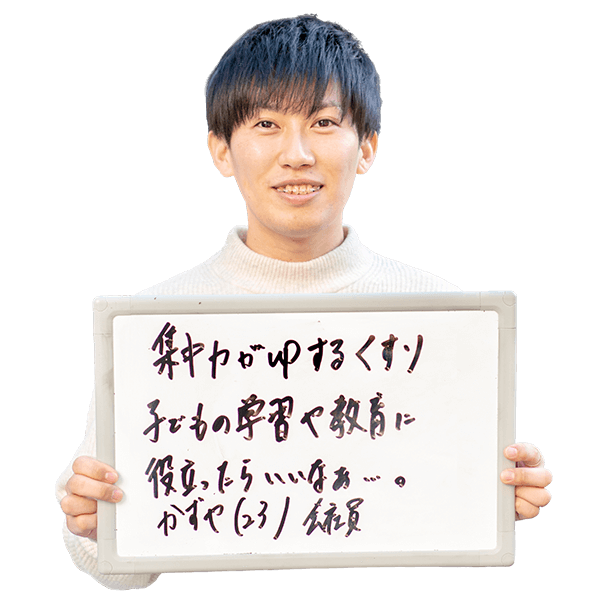 集中力がupするくすり
子どもの学習や教育に
役立ったらいいなぁ…。
かずや(23) 会社員